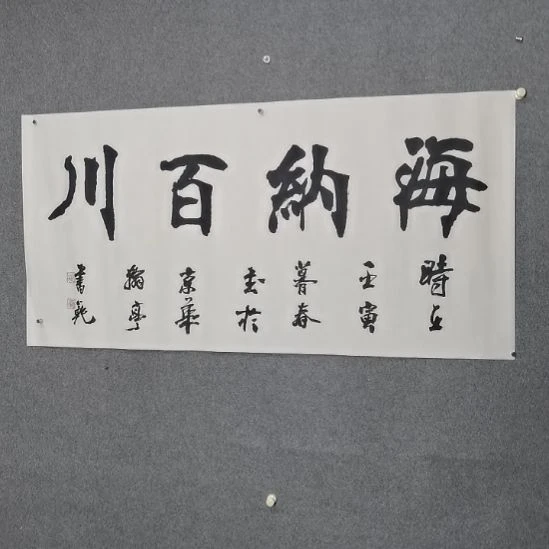 海納百川
時在
壬寅
暮春
書於
京華
翰亭
書苑